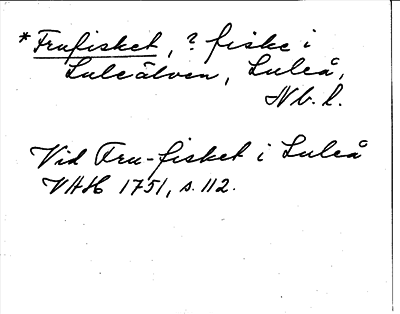 *Frufisket, ? fiske i
Luleälven, Luleå,
Nb. l.
Vid Fru-fisket i Luleå
VAH 1751, s. 112.